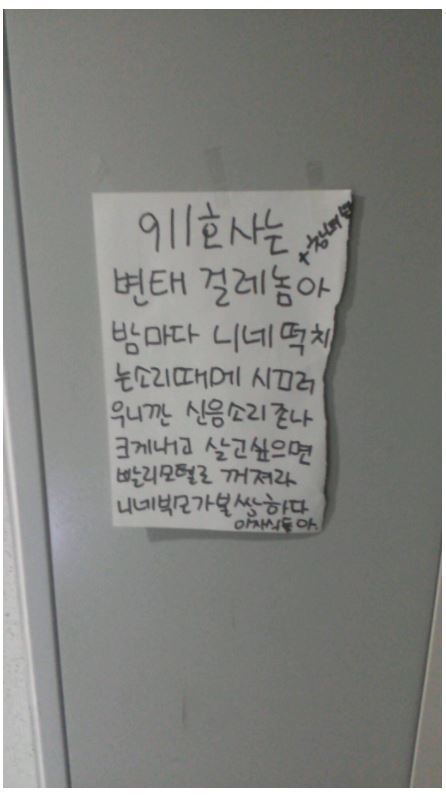 911호사는
+창녀년
변태 걸레놈아
밤마다 니네떡치
는소리때메 시끄러
우니깐 신음소리존나
크게내고 살고싶으면
빨리모텔로 꺼져라
니네부모가불쌍하다
이자식들아.